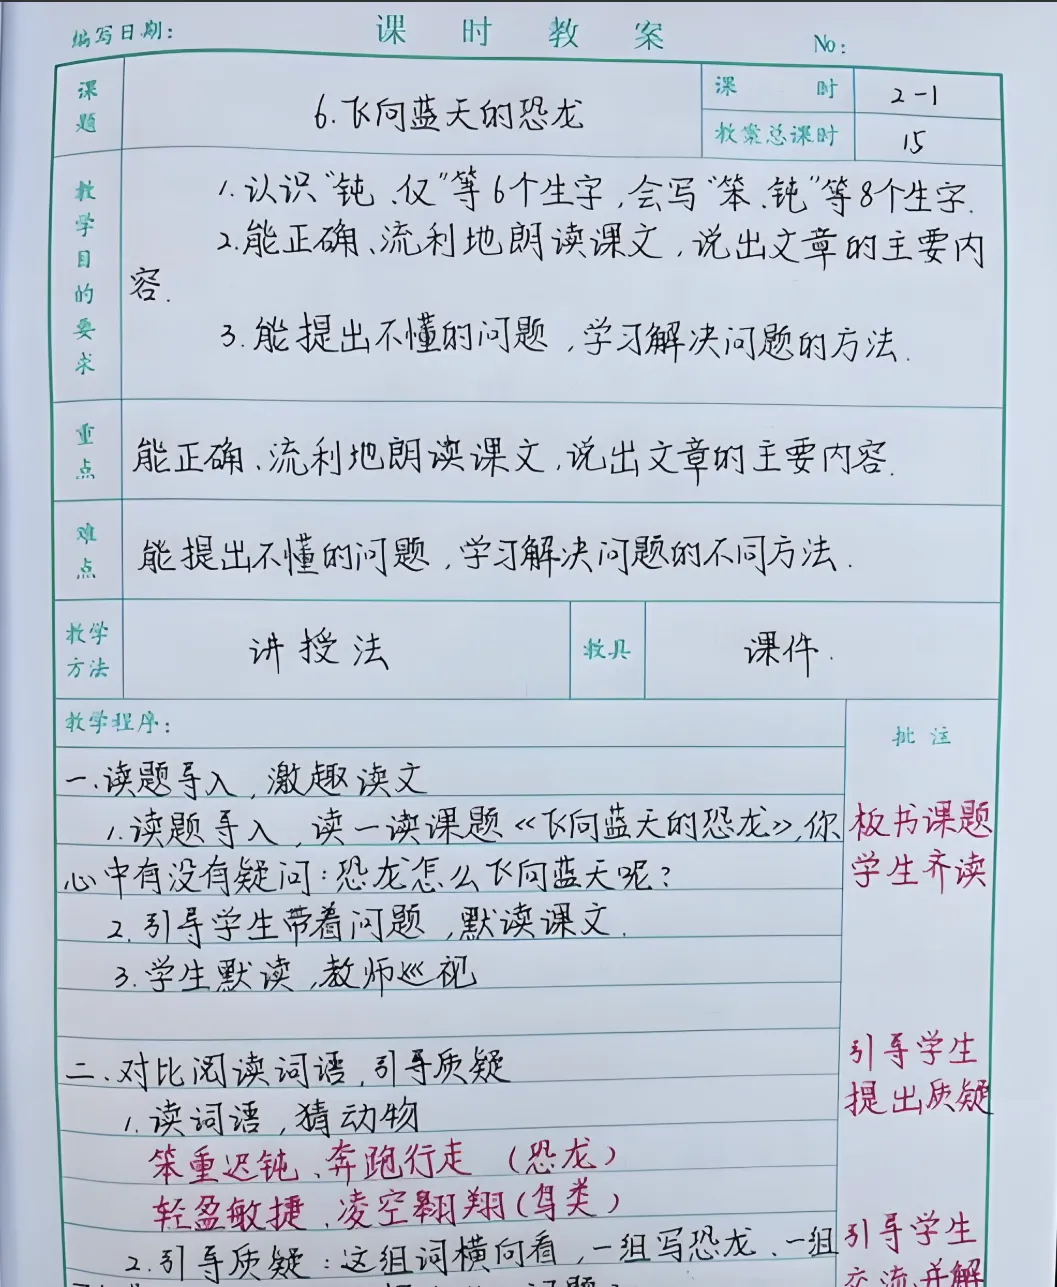 编写日期:
课时教案
No:
课题
6.飞向蓝天的恐龙
课时
2-1
教案总课时
15
教学目的要求
1.认识“钝、仅”等6个生字,会写“笨、钝”等8个生字.
2.能正确、流利地朗读课文,说出文章的主要内
容.
3.能提出不懂的问题,学习解决问题的方法.
重点
能正确、流利地朗读课文,说出文章的主要内容.
难点
能提出不懂的问题,学习解决问题的不同方法.
教学方法
讲授法
教具
课件.
教学程序:
批注
一.读题导入,激趣读文
1.读题导入,读一读课题《飞向蓝天的恐龙》,你
心中有没有疑问:恐龙怎么飞向蓝天呢?
板书课题
学生齐读
2.引导学生带着问题,默读课文.
3.学生默读,教师巡视
二.对比阅读词语,引导质疑
引导学生
提出质疑
1.读词语,猜动物
笨重迟钝、奔跑行走 (恐龙)
轻盈敏捷、凌空翱翔(鸟类)
2.引导质疑:这组词横向看,一组写恐龙、一组
引导学生
交流,并解
问题?